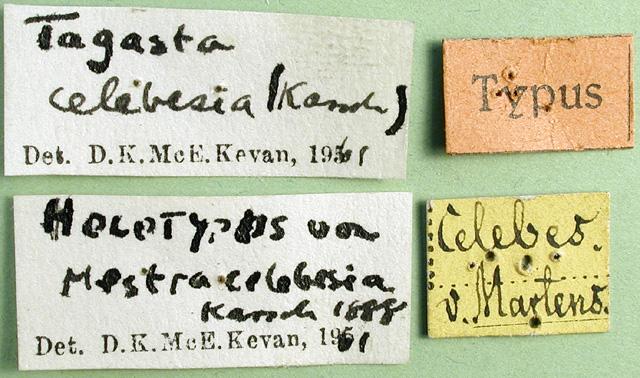 Tagasta
celebesia (Karsch)
Det. D.K.McE.Kevan, 1961
Typus
HOLOTYPUS von
Mestra celebesia
Karsch 1888
Det. D.K.McE.Kevan, 1961
Celebes.
v. Martens.